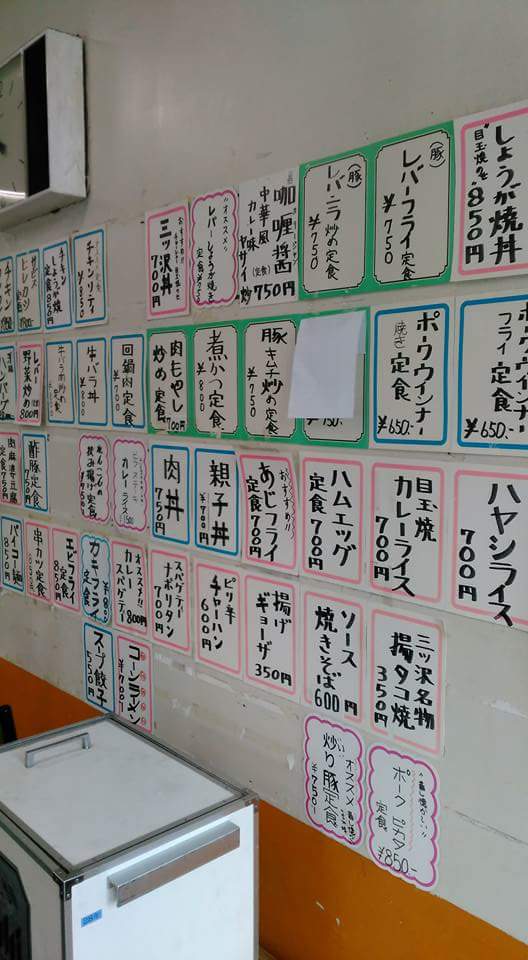 しょうが焼丼
目玉焼
850円
(豚)
レバーフライ定食
¥750
(豚)
レバニラ炒め定食
¥750
咖喱醤
中華風
カレー味
ヤサイ炒
(定食)
750円
オススメ
レバーしょうが焼き
定食
三ッ沢丼
700円
チキンリティ
¥850
チキン
しょうが焼
定食
850円
チキン
ポークウインナー
フライ定食
¥650.-
ポークウインナー
焼き定食
¥650.-
750.-
豚
キムチ炒め定食
¥750
煮かつ定食
¥800
肉もやし
炒め定食
700円
回鍋肉定食
¥700
牛バラ丼
¥800
牛バラ肉炒め
定食
レバー
野菜炒め
800円
ハンバーグ
ハヤシライス
700円
目玉焼
カレーライス
700円
ハムエッグ
定食700円
おすすめ!!
あじフライ
定食700円
親子丼
¥700円
肉丼
750円
カレーライス
かき揚げ定食
酢豚定食
750円
麻婆豆腐
定食
三ッ沢名物
揚タコ焼
350円
ソース
焼きそば
600円
揚げ
ギョーザ
350円
ピリ辛
チャーハン
600円
スパゲテー
ナポリタン
700円
オススメ!!
カレー
スパゲテー
800円
カキフライ
定食
エビフライ
定食
850円
串カツ定食
850円
パイコー麺
850円
コーンラーメン
¥700
スープ餃子
550円
ポークピカタ
定食
¥850.-
オススメ
炒り豚定食
¥750.-